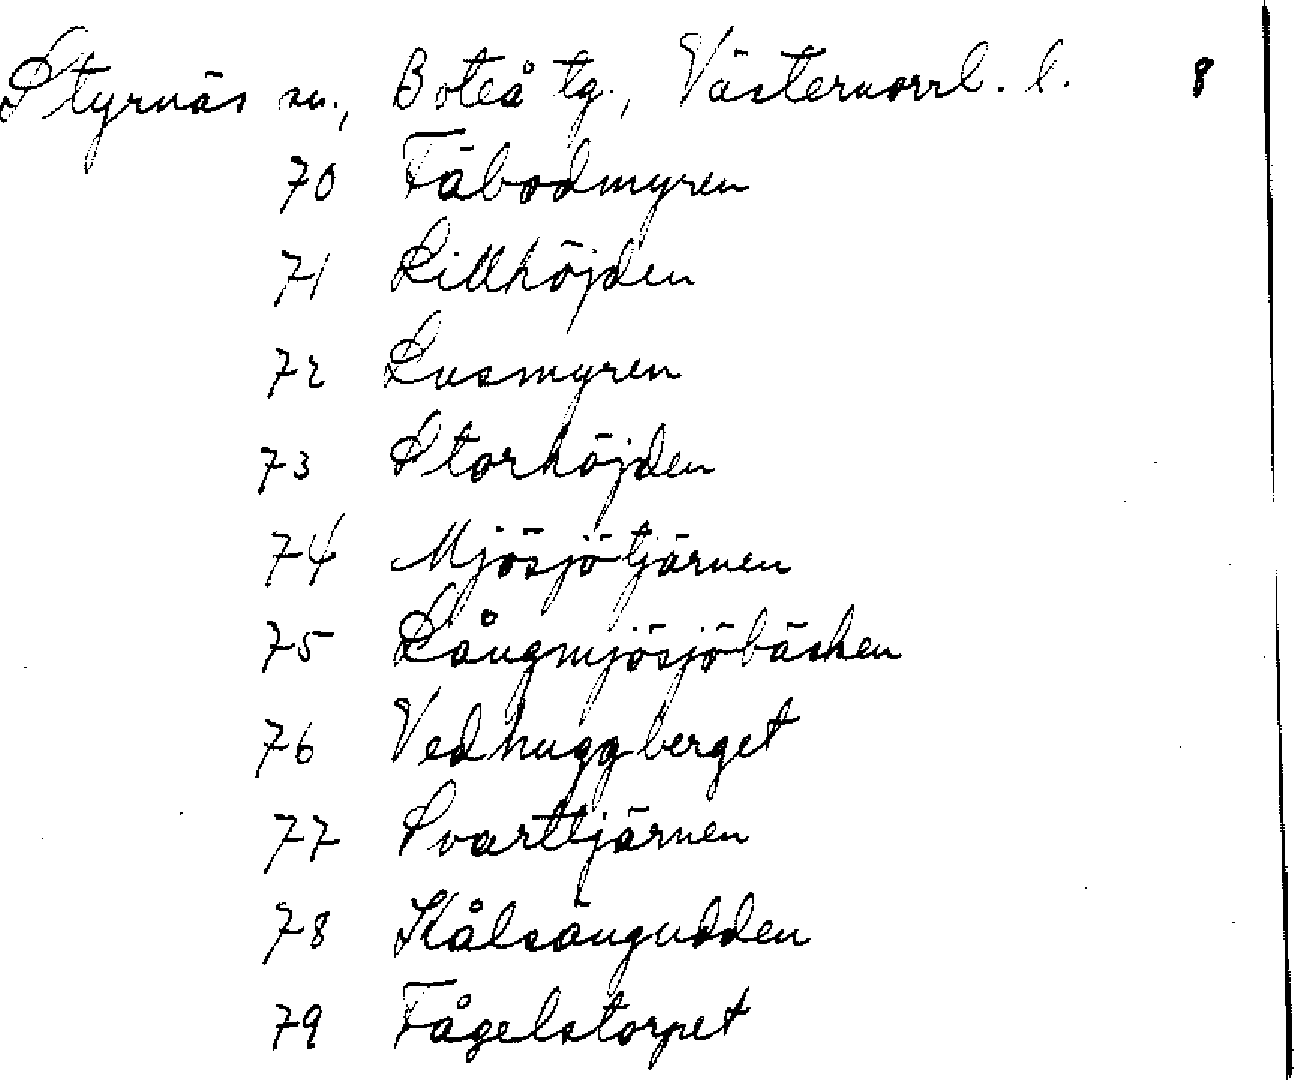 Styrnäs sn., Boteå tg., Västernorrl. l. 8
70 Fäbodmyren
71 Lillhöjden
72 Lusmyren
73 Storhöjden
74 Mjösjötjärnen
75 Långmjösjöbäcken
76 Vedhuggberget
77 Svarttjärnen
78 Kålsängudden
79 Fågelstorpet